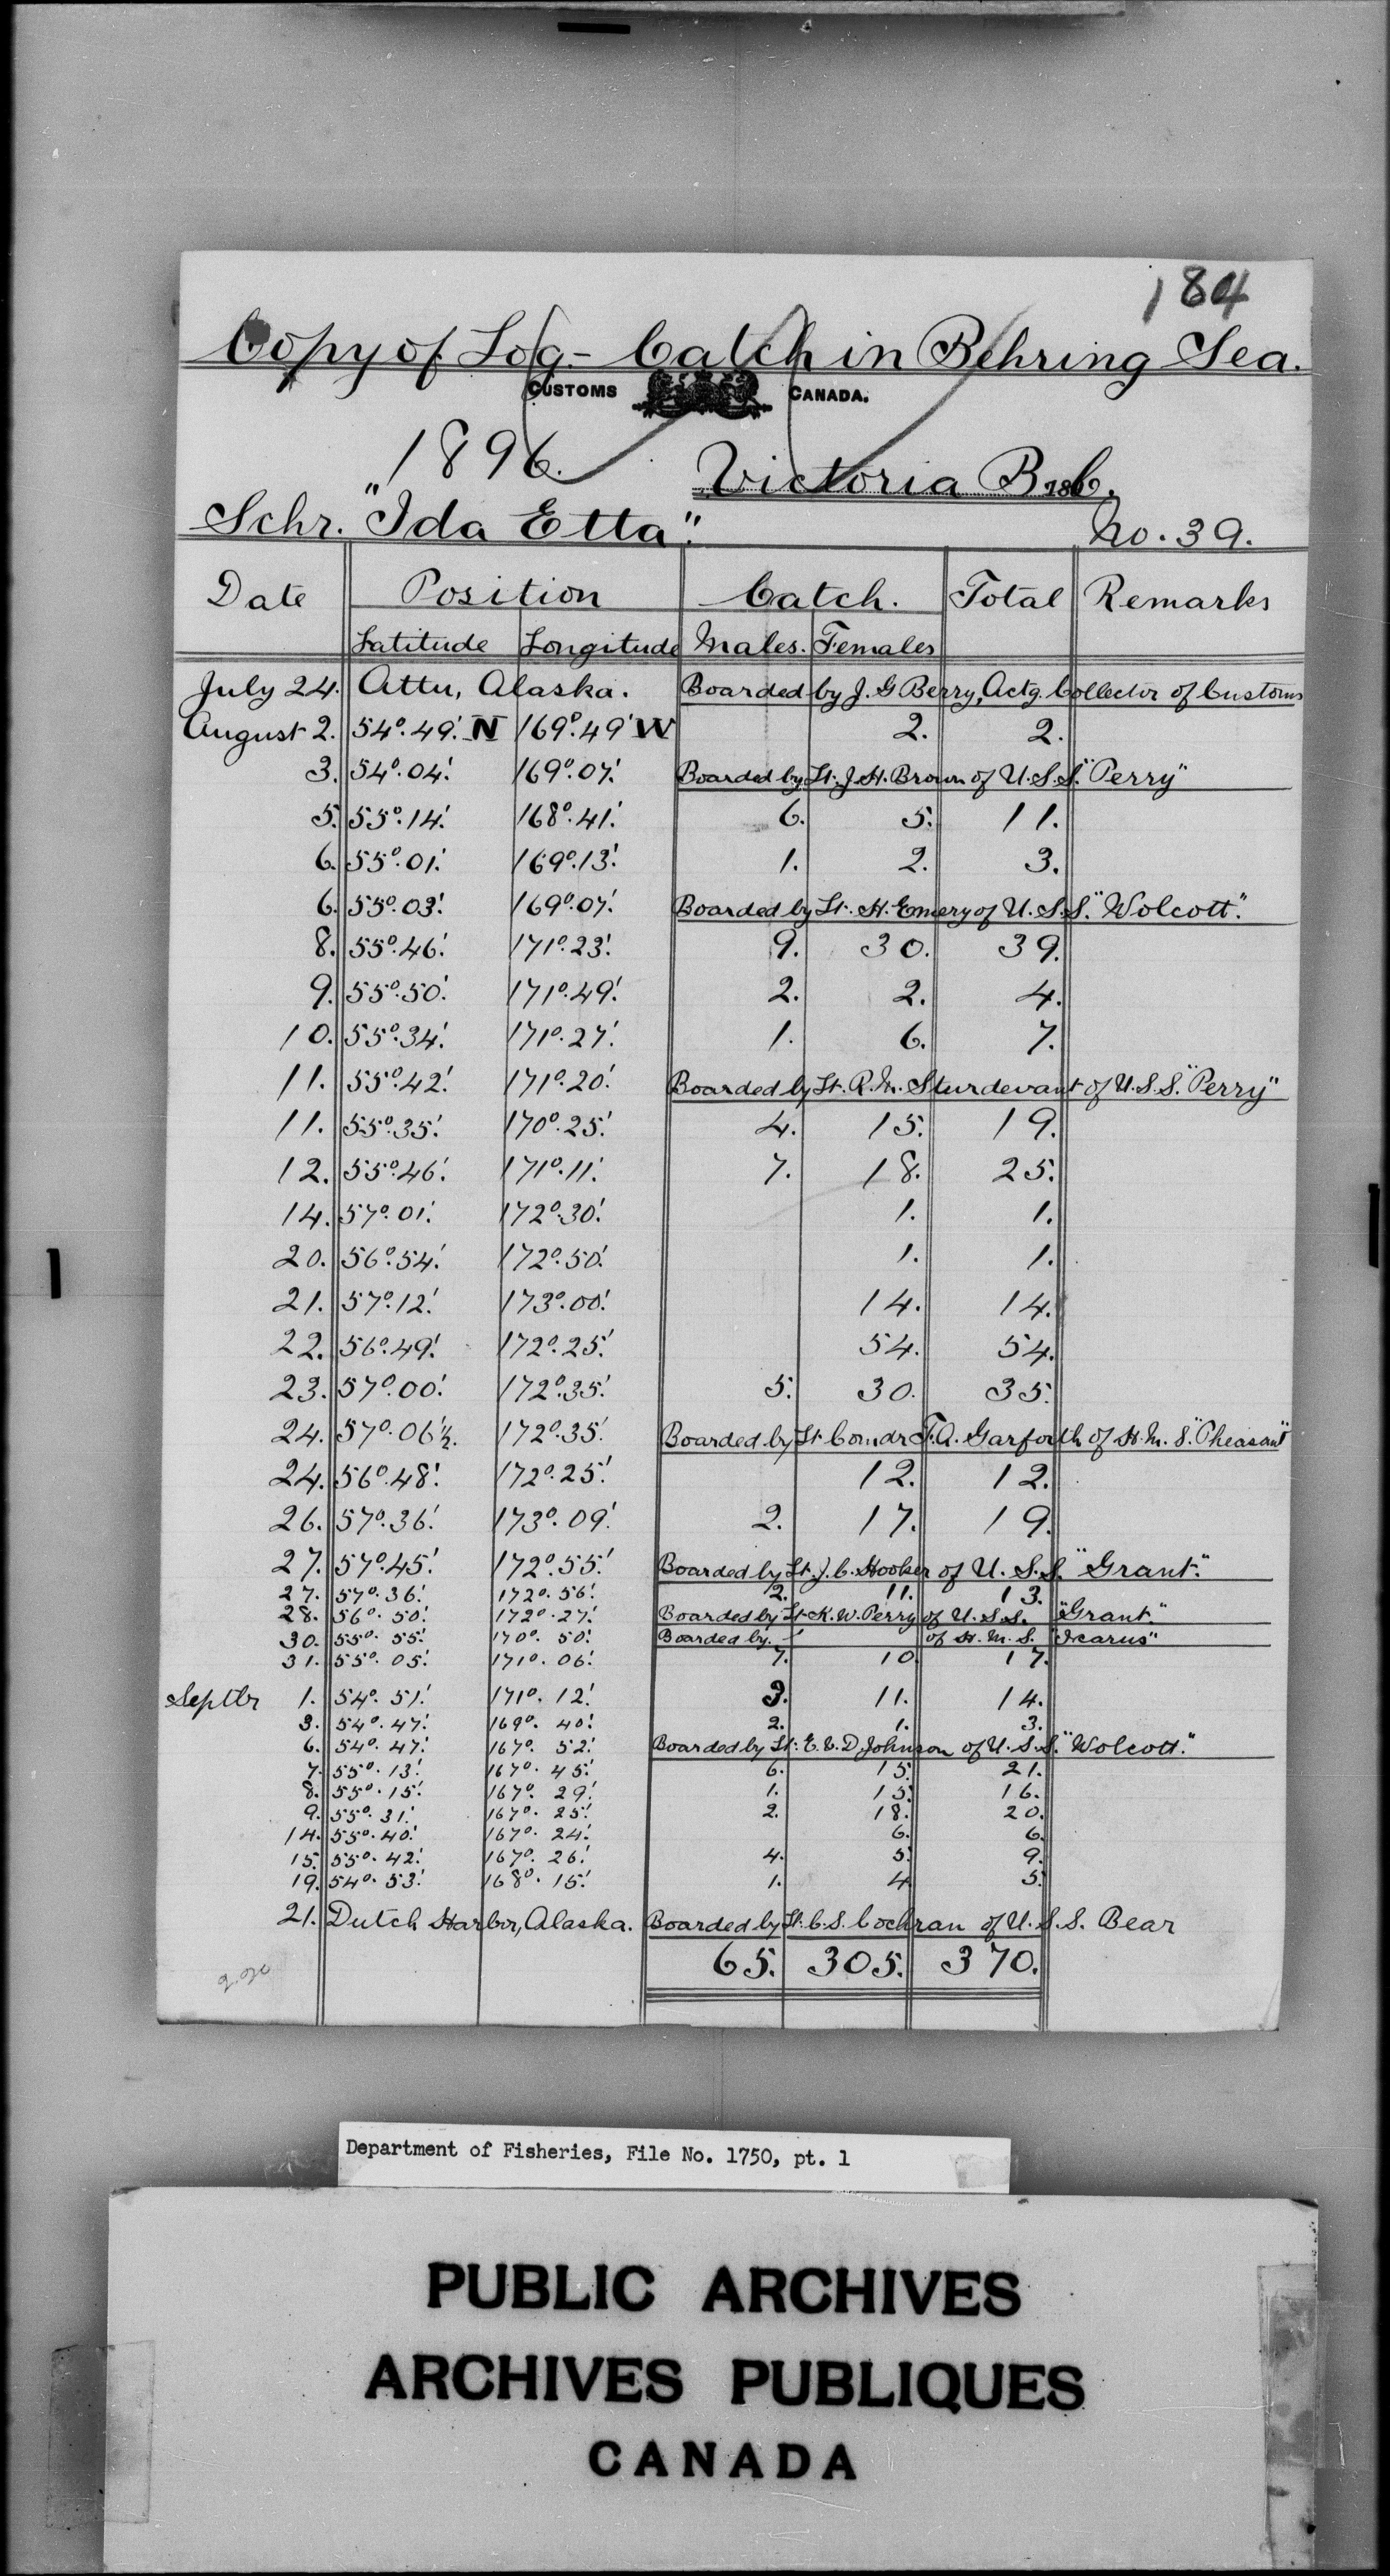 184
Copy of Log - Catch in Behring Sea.
CUSTOMS CANADA.
1896. Victoria B.C. 186
Schr. "Ida Etta". No. 39.
Date Position Catch. Total Remarks
Latitude Longitude Males. Females
July 24. Attu, Alaska. Boarded by J. G Berry, Actg. Collector of Customs
August 2. 54°.49'. N 169°.49' W 2. 2.
3. 54°.04'. 169°.07'. Boarded by Lt. J. H. Brown of U.S.S. "Perry"
5. 55°.14'. 168°.41'. 6. 5. 11.
6. 55°.01'. 169°.13'. 1. 2. 3.
6. 55°.03'. 169°.07'. Boarded by Lt. H. Emery of U.S.S. "Wolcott".
8. 55°.46'. 171°.23'. 9. 30. 39.
9. 55°.50'. 171°.49'. 2. 2. 4.
10. 55°.34'. 171°.27'. 1. 6. 7.
11. 55°.42'. 171°.20'. Boarded by Lt. R. M. Sturdevant of U.S.S. "Perry"
11. 55°.35'. 170°.25'. 4. 15. 19.
12. 55°.46'. 171°.11'. 7. 18. 25.
14. 57°.01'. 172°.30'. 1. 1.
20. 56°.54'. 172°.50'. 1. 1.
21. 57°.12'. 173°.00'. 14. 14.
22. 56°.49'. 172°.25'. 54. 54.
23. 57°.00'. 172°.35'. 5. 30. 35.
24. 57°.06'½. 172°.35'. Boarded by Lt. Comdr F. A. Garforth of H.M.S. "Pheasant"
24. 56°.48'. 172°.25'. 12. 12.
26. 57°.36'. 173°.09'. 2. 17. 19.
27. 57°.45'. 172°.55'. Boarded by Lt. J. C. Hooker of U.S.S. "Grant".
27. 57°.36'. 172°.56'. 2. 11. 13.
28. 56°.50'. 172°.27'. Boarded by Lt. K. W. Perry of U.S.S. "Grant."
30. 55°.55'. 170°.50'. Boarded by - of H.M.S. "Icarus"
31. 55°.05'. 171°.06'. 7. 10. 17.
Septbr 1. 54°.51'. 171°.12'. 3. 11. 14.
3. 54°.47'. 169°.40'. 2. 1. 3.
6. 54°.47'. 167°.52'. Boarded by Lt. E. V. D. Johnson of U.S.S. "Wolcott."
7. 55°.13'. 167°.45'. 6. 15. 21.
8. 55°.15'. 167°.29'. 1. 15. 16.
9. 55°.31'. 167°.25'. 2. 18. 20.
14. 55°.40'. 167°.24'. 6. 6.
15. 55°.42'. 167°.26'. 4. 5. 9.
19. 54°.53'. 168°.15'. 1. 4 5.
21. Dutch Harbor, Alaska. Boarded by Lt. C. S. Cochran of U.S.S. Bear
65. 305. 370.
Department of Fisheries, File No. 1750, pt. 1
PUBLIC ARCHIVES
ARCHIVES PUBLIQUES
CANADA